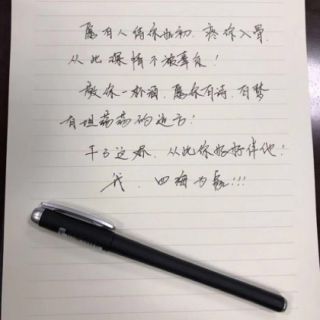 愿有人待你如初,疼你入骨,
从此深情不被辜负!
敬你一杯酒,愿你有诗,有梦
有坦荡荡的远方!
干了这杯,从此你好好伴他!
我,四海为家!!!